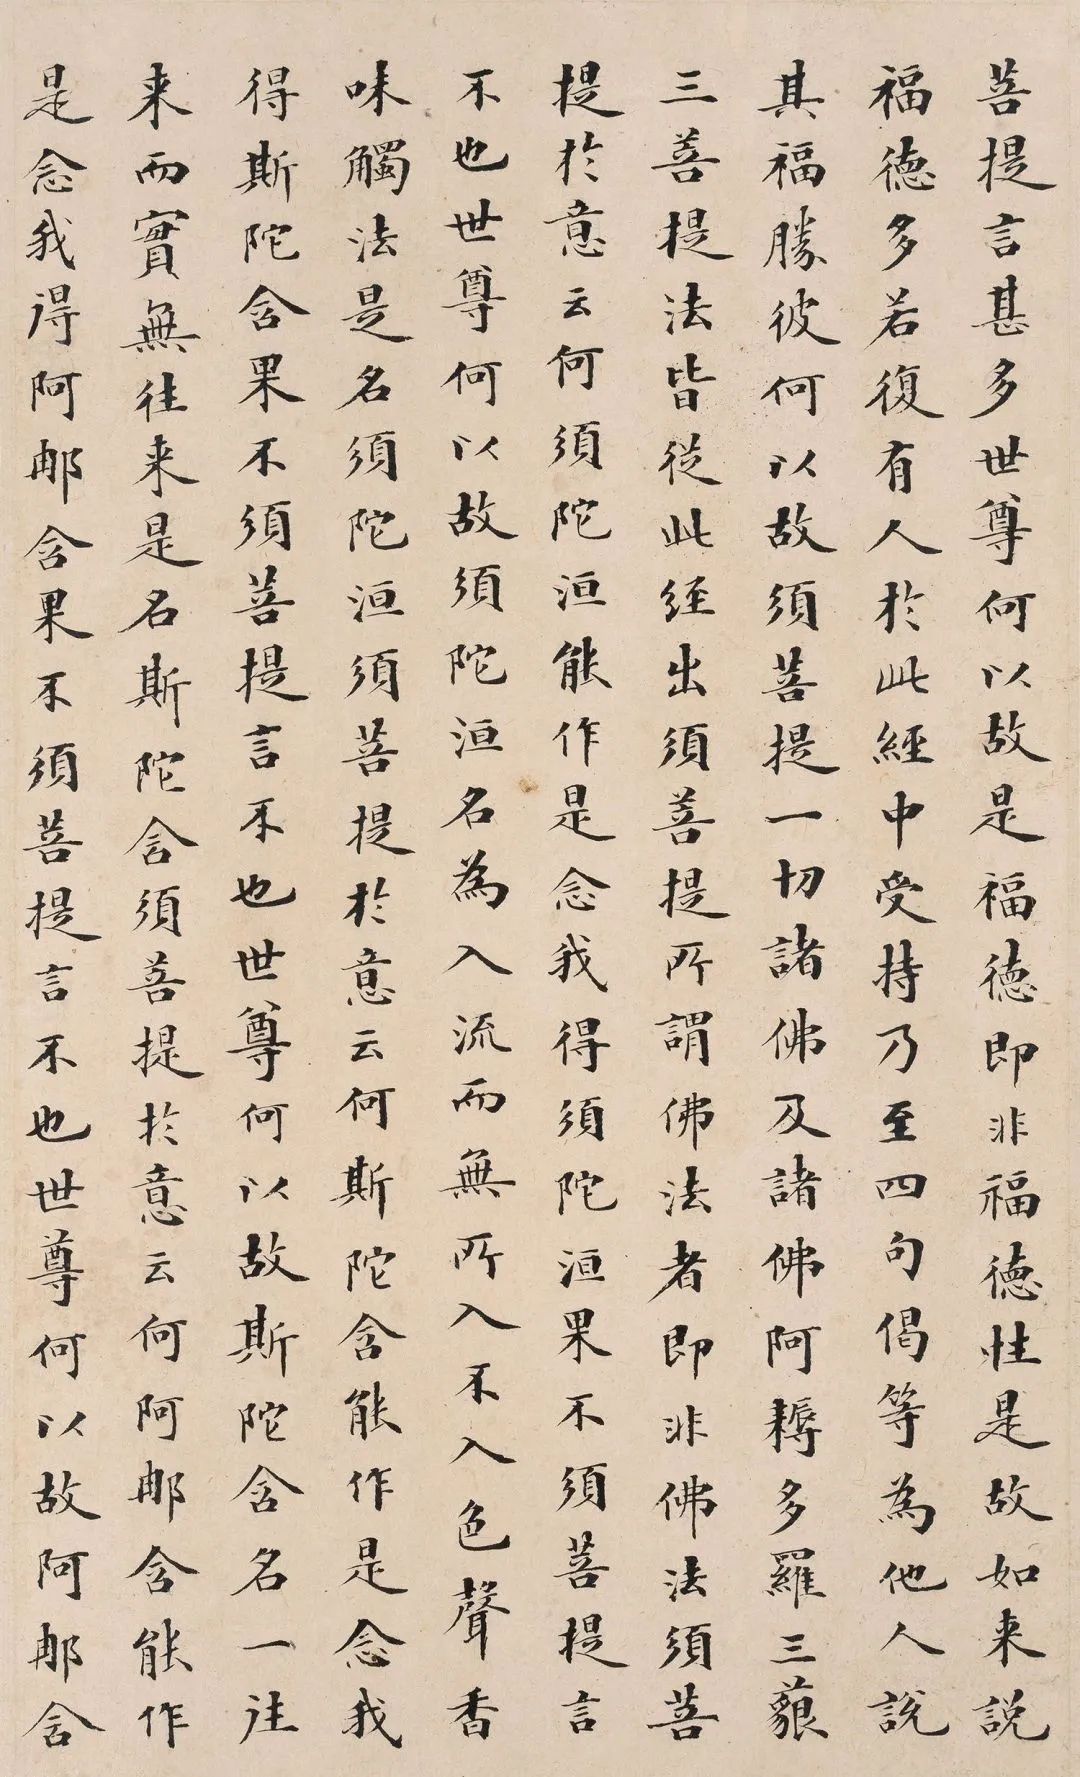 菩提言甚多世尊何以故是福德即非福德性是故如来説
福德多若復有人於此經中受持乃至四句偈等為他人說
其福勝彼何以故須菩提一切諸佛及諸佛阿耨多羅三藐
三菩提法皆從此經出須菩提所謂佛法者即非佛法須菩
提於意云何須陀洹能作是念我得須陀洹果不須菩提言
不也世尊何以故須陀洹名為入流而無所入不入色聲香
味觸法是名須陀洹須菩提於意云何斯陀含能作是念我
得斯陀含果不須菩提言不也世尊何以故斯陀含名一往
来而實無往来是名斯陀含須菩提於意云何阿那含能作
是念我得阿那含果不須菩提言不也世尊何以故阿那含